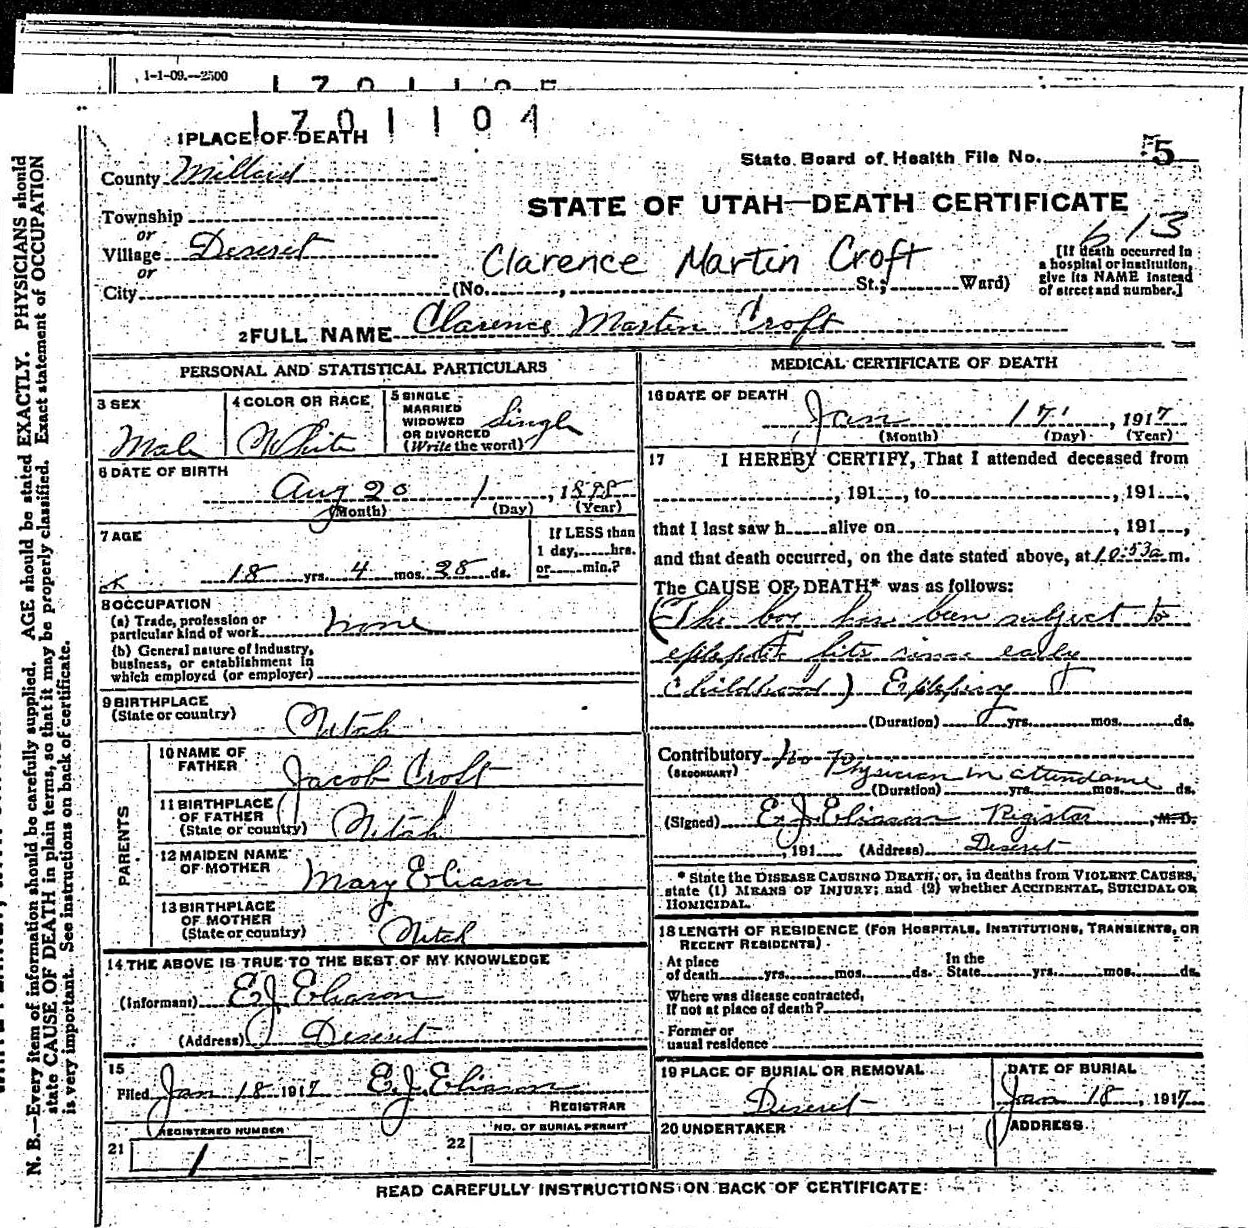 1-1-09.--2500
1701105
1701104
1 PLACE OF DEATH
State Board of Health File No. 5
County Millard
STATE OF UTAH—DEATH CERTIFICATE
Township
or
613
Village Deseret
or
Clarence Martin Croft
[If death occurred in
a hospital or institution,
give its NAME instead
of street and number.]
City (No. , St.; Ward)
2 FULL NAME Clarence Martin Croft
PERSONAL AND STATISTICAL PARTICULARS
3 SEX
Male
4 COLOR OR RACE
White
5 SINGLE
MARRIED
WIDOWED
OR DIVORCED
(Write the word)
Single
6 DATE OF BIRTH
Aug 20 1, 1898
(Month) (Day) (Year)
7 AGE
18 yrs. 4 mos. 28 ds.
If LESS than
1 day, hrs.
or min.?
8 OCCUPATION
(a) Trade, profession or
particular kind of work none
(b) General nature of industry,
business, or establishment in
which employed (or employer)
9 BIRTHPLACE
(State or country)
Utah
PARENTS
10 NAME OF
FATHER
Jacob Croft
11 BIRTHPLACE
OF FATHER
(State or country)
Utah
12 MAIDEN NAME
OF MOTHER
Mary Eliason
13 BIRTHPLACE
OF MOTHER
(State or country)
Utah
14 THE ABOVE IS TRUE TO THE BEST OF MY KNOWLEDGE
(Informant) E J Eliason
(Address) Deseret
15
Filed Jan 18 1917 E.J. Eliason
REGISTRAR
REGISTERED NUMBER
21 1
NO. OF BURIAL PERMIT
22
MEDICAL CERTIFICATE OF DEATH
16 DATE OF DEATH
Jan 17, 1917
(Month) (Day) (Year)
17 I HEREBY CERTIFY, That I attended deceased from
, 191 , to , 191 ,
that I last saw h alive on , 191 ,
and that death occurred, on the date stated above, at 10:53a m.
The CAUSE OF DEATH* was as follows:
(The boy has been subject to
epileptic fits since early
Childhood) Epilepsy
(Duration) yrs. mos. ds.
Contributory No Physician in attendance
(SECONDARY)
(Duration) yrs. mos. ds.
(Signed) E. J. Eliason Registar, M. D.
, 191 (Address) Deseret
* State the DISEASE CAUSING DEATH, or, in deaths from VIOLENT CAUSES,
state (1) MEANS OF INJURY; and (2) whether ACCIDENTAL, SUICIDAL OR
HOMICIDAL.
18 LENGTH OF RESIDENCE (FOR HOSPITALS, INSTITUTIONS, TRANSIENTS, OR
RECENT RESIDENTS)
At place
of death yrs. mos. ds.
In the
State yrs. mos. ds.
Where was disease contracted,
If not at place of death?
Former or
usual residence
19 PLACE OF BURIAL OR REMOVAL
Deseret
DATE OF BURIAL
Jan 18, 1917
20 UNDERTAKER
ADDRESS
READ CAREFULLY INSTRUCTIONS ON BACK OF CERTIFICATE
N. B.—Every item of information should be carefully supplied. AGE should be stated EXACTLY. PHYSICIANS should
state CAUSE OF DEATH in plain terms, so that it may be properly classified. Exact statement of OCCUPATION
is very important. See instructions on back of certificate.